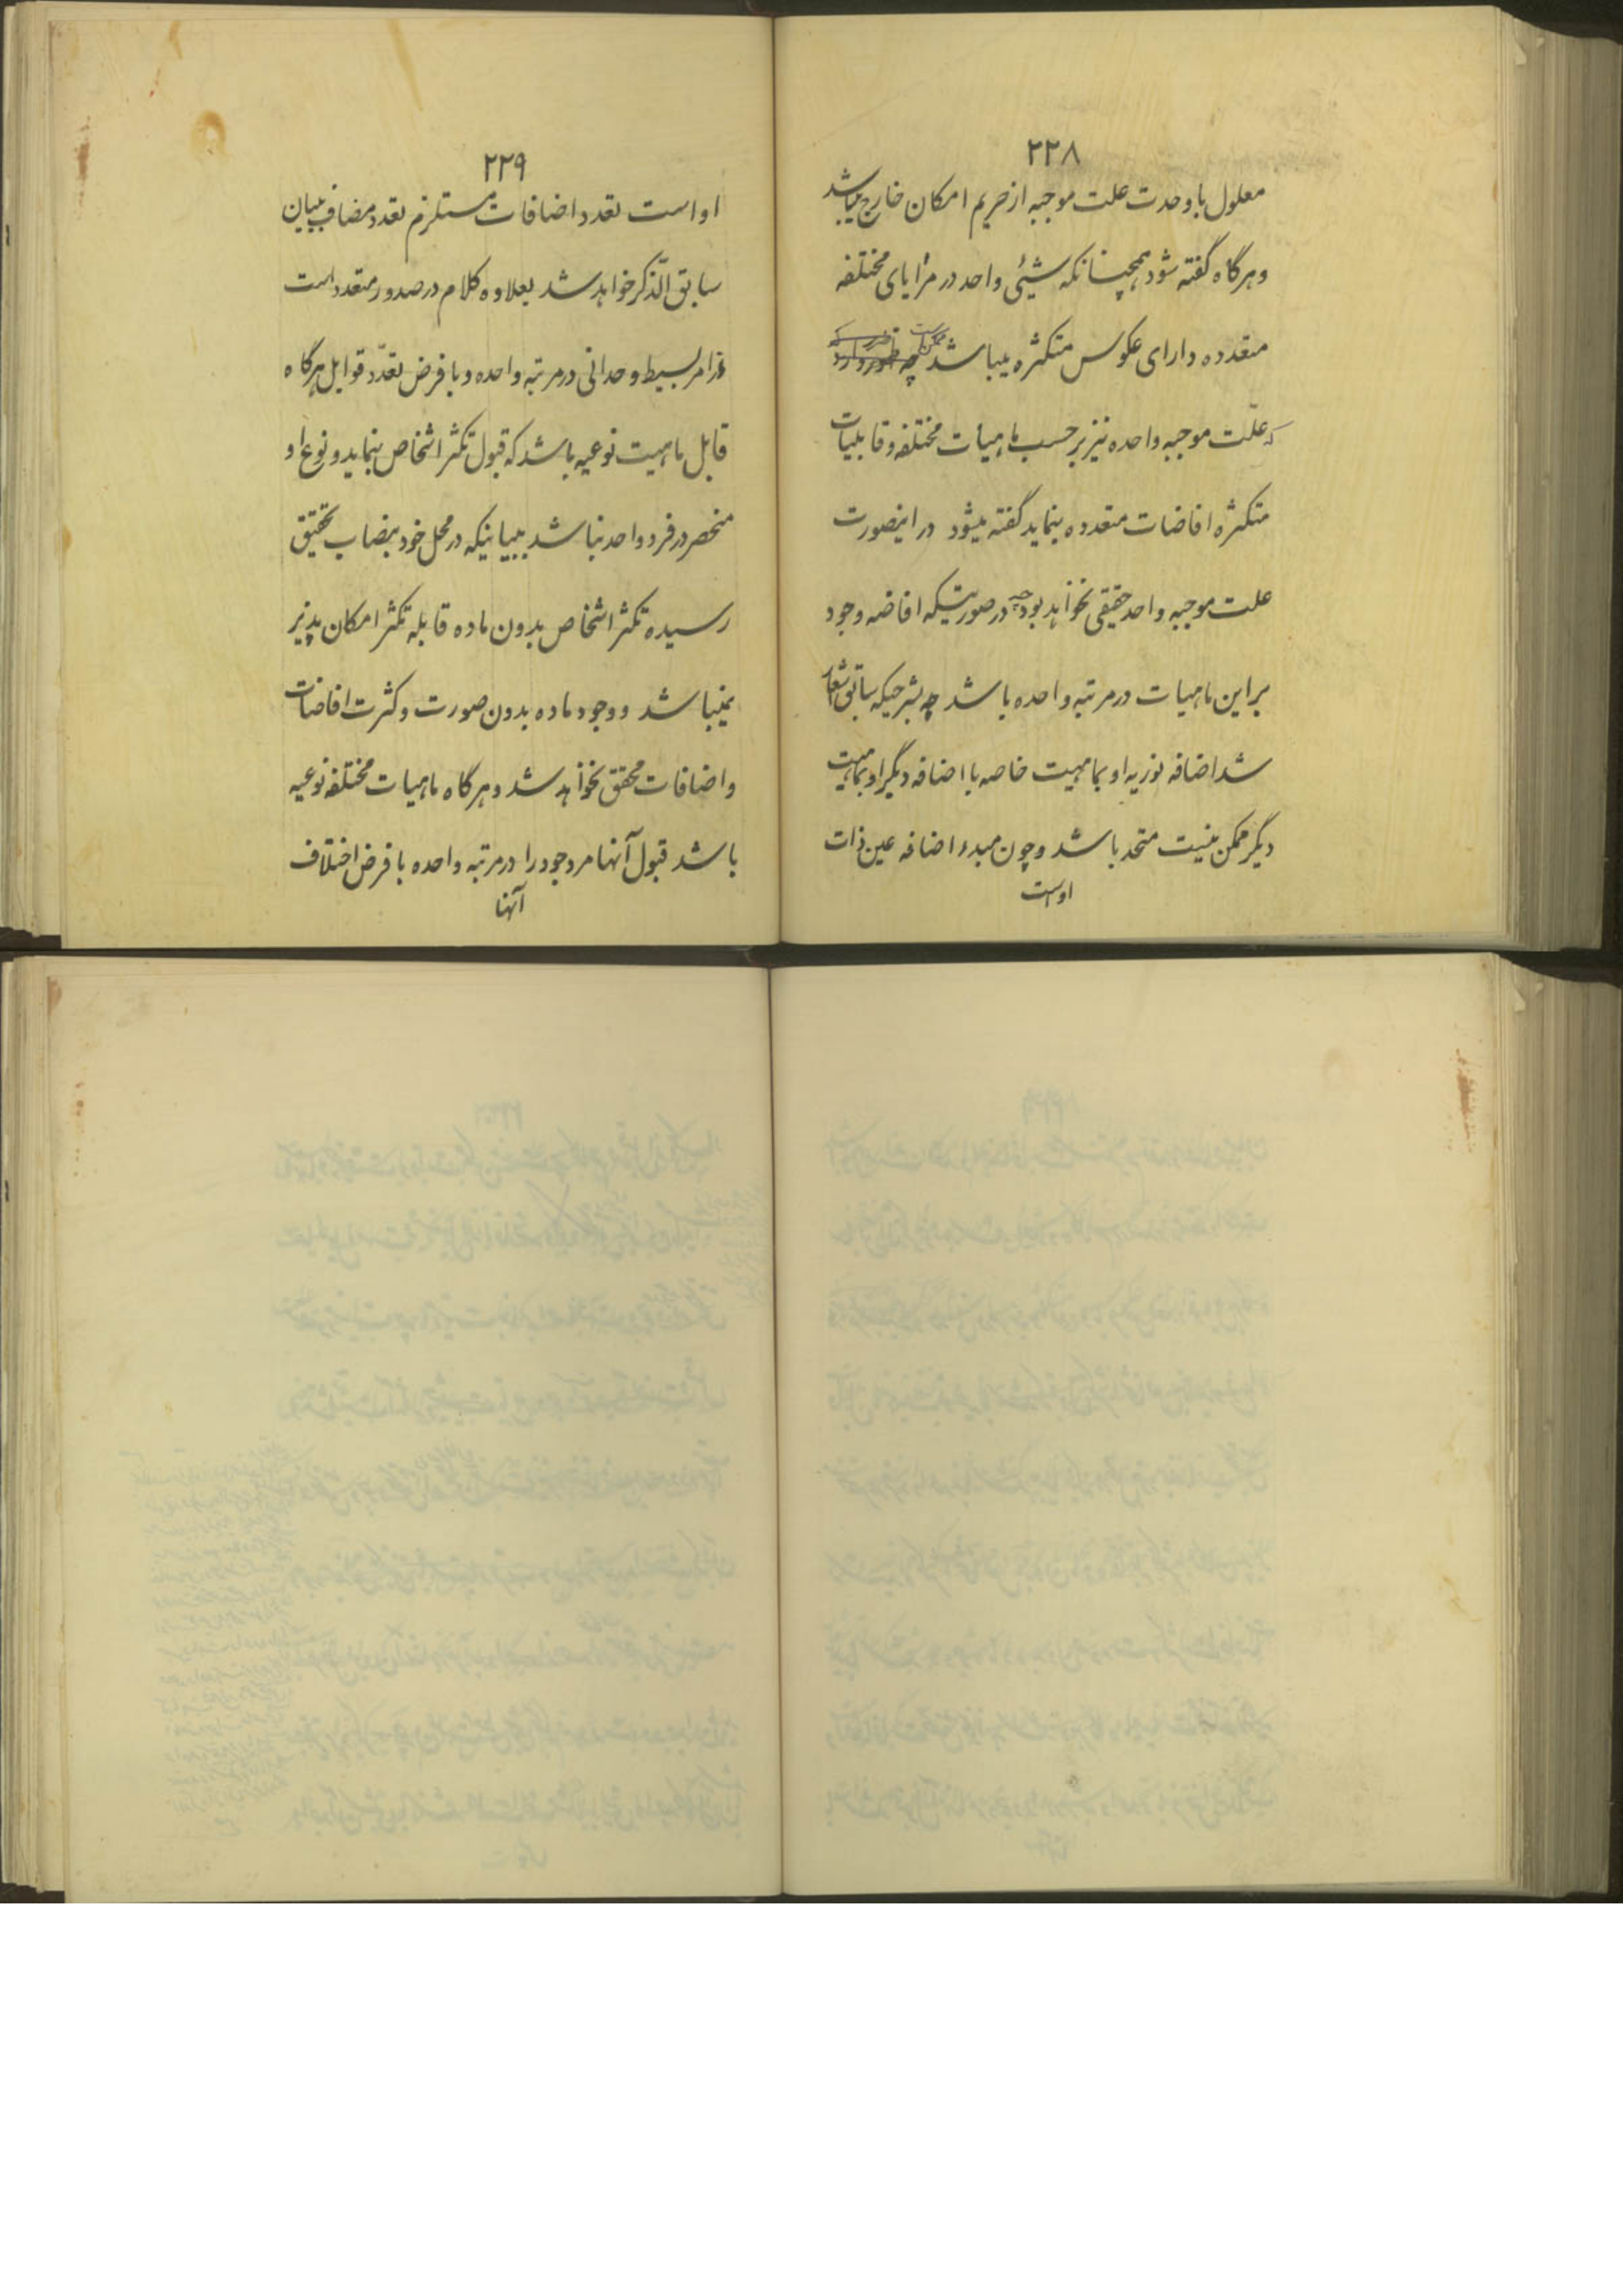 ۲۲۸
معلول با وحدت علت موجبه از حریم امکان خارج میباشد
و هرگاه گفته شود همچنانکه شیئی واحد در مرایای مختلفه
متعدده دارای عکوس متکثره میباشد ممکن است چه
که علّت موجبه واحده نیز بر حسب ماهیات مختلفه و قابلیات
متکثره افاضات متعدده بنماید گفته میشود در اینصورت
علت موجبه واحد حقیقی نخواهد بود چه در صورتیکه افاضه وجود
بر این ماهیات در مرتبه واحده باشد چه بشرحیکه سابق اشعار
شد اضافه نوریه او بماهیت خاصه با اضافه دیگر او بماهیت
دیگر ممکن نیست متحد باشد و چون مبدء اضافه عین ذات
اوست
۲۲۹
او است تعدد اضافات مستلزم تعدد مضاف ببیان
سابق الّذکر خواهد شد بعلاوه کلام در صدور متعدد است
از امر بسیط وحدانی در مرتبه واحده و با فرض تعدّد قوابل هرگاه
قابل ماهیت نوعیه باشد که قبول تکثر اشخاص بنماید و نوع او
منحصر در فرد واحد نباشد ببیانیکه در محل خود بنصاب تحقیق
رسیده تکثر اشخاص بدون ماده قابله تکثر امکان پذیر
نمیباشد و وجود ماده بدون صورت و کثرت افاضات
و اضافات محقق نخواهد شد و هرگاه ماهیات مختلفه نوعیه
باشد قبول آنها مر وجود را در مرتبه واحده با فرض اختلاف
آنها